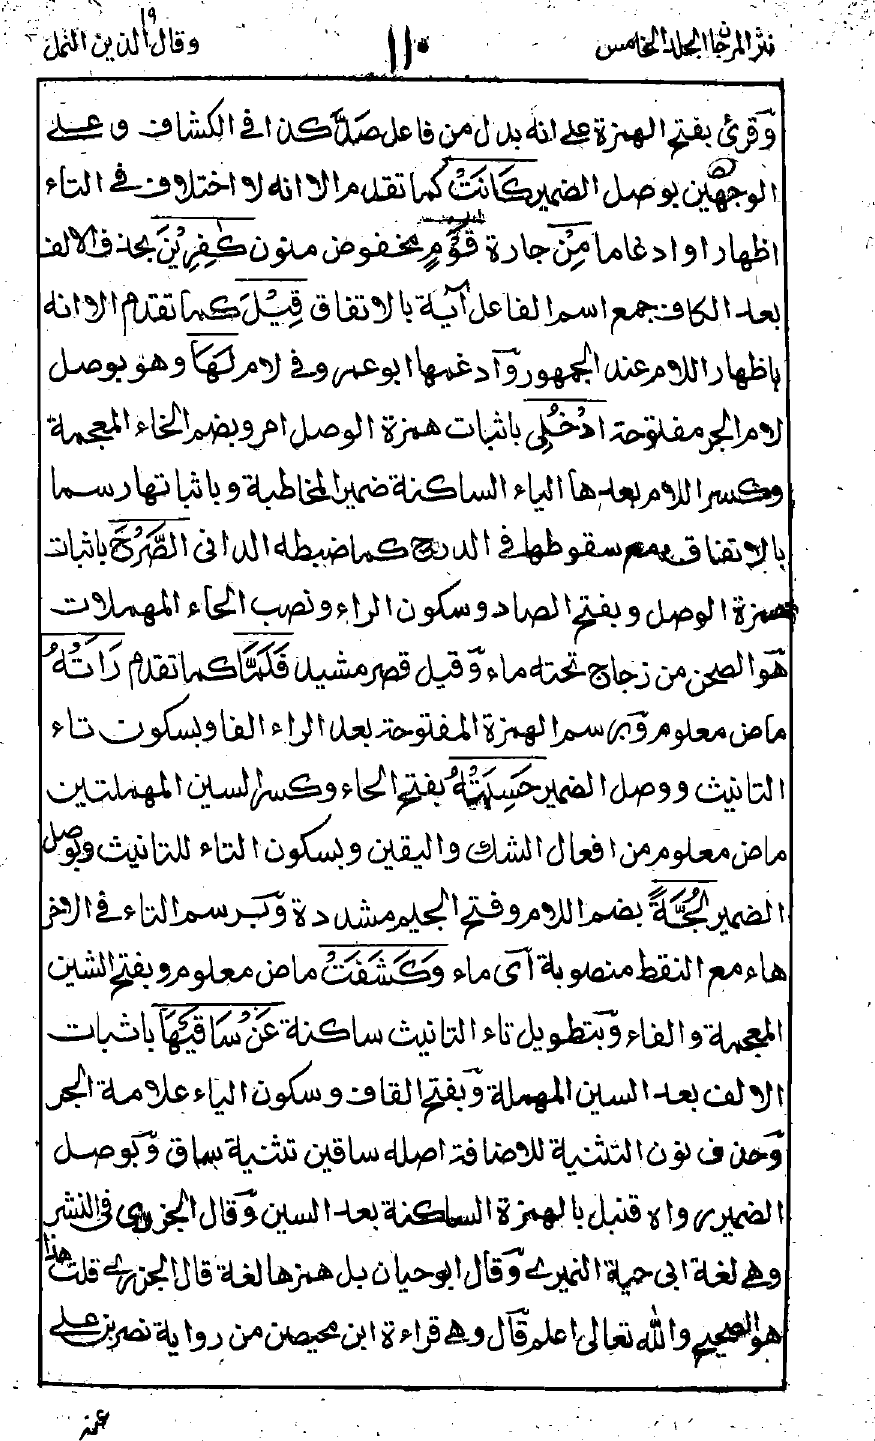 نثر المرجان الجلد الخامس
١١٠
وقال الذين ١٩ النمل
وقرئ بفتح الهمزة على انه بدل من فاعل صَدَّ كذا فى الكشاف و على
الوجهين بوصل الضمير كَانَتْ كما تقدم الا انه لا اختلاف فى التاء
اظهارا و ادغاما مِنْ جارة قَوْمٍ مخفوض منون كٰفِرِيْنَ بحذف الالف
بعد الكاف جمع اسم الفاعل آية بالاتفاق قِيْلَ كما تقدم الا انه
باظهار اللام عند الجمهور وادغمها ابو عمرو فى لام لَهَا وهو بوصل
لام الجر مفتوحة ادْخُلِى باثبات همزة الوصل امر وبضم الخاء المعجمة
وكسر اللام بعدها الياء الساكنة ضمير المخاطبة وباثباتها رسما
بالاتفاق مع سقوطها فى الدرج كما ضبطه الدانى الصَّرْحَ باثبات
همزة الوصل وبفتح الصاد وسكون الراء ونصب الحاء المهملات
هو الصحن من زجاج تحته ماء وقيل قصر مشيد فَلَمَّا كما تقدم رَاَتْهُ
ماض معلوم وبرسم الهمزة المفتوحة بعد الراء الفا وبسكون تاء
التانيث ووصل الضمير حَسِبَتْهُ بفتح الحاء وكسر السين المهملتين
ماض معلوم من افعال الشك واليقين وبسكون التاء للتانيث وبوصل
الضمير لُجَّةً بضم اللام وفتح الجيم مشددة وبرسم التاء فى الاخر
هاء مع النقط منصوبة آى ماء وَكَشَفَتْ ماض معلوم وبفتح الشين
المعجمة والفاء وبتطويل تاء التانيث ساكنة عَنْ سَاقَيْهَا باثبات
الالف بعد السين المهملة وبفتح القاف وسكون الياء علامة الجر
وحذف نون التثنية للاضافة اصله ساقين تثنية ساق وبوصل
الضمير رواه قنبل بالهمزة الساكنة بعد السين وقال الجزرى فى النشر
وهى لغة ابى حية النميرى وقال ابو حيان بل همزها لغة قال الجزرى قلت هذا
هو الصحيح والله تعالى اعلم قال وهى قراءة ابن محيصن من رواية نصر بن على
عنه